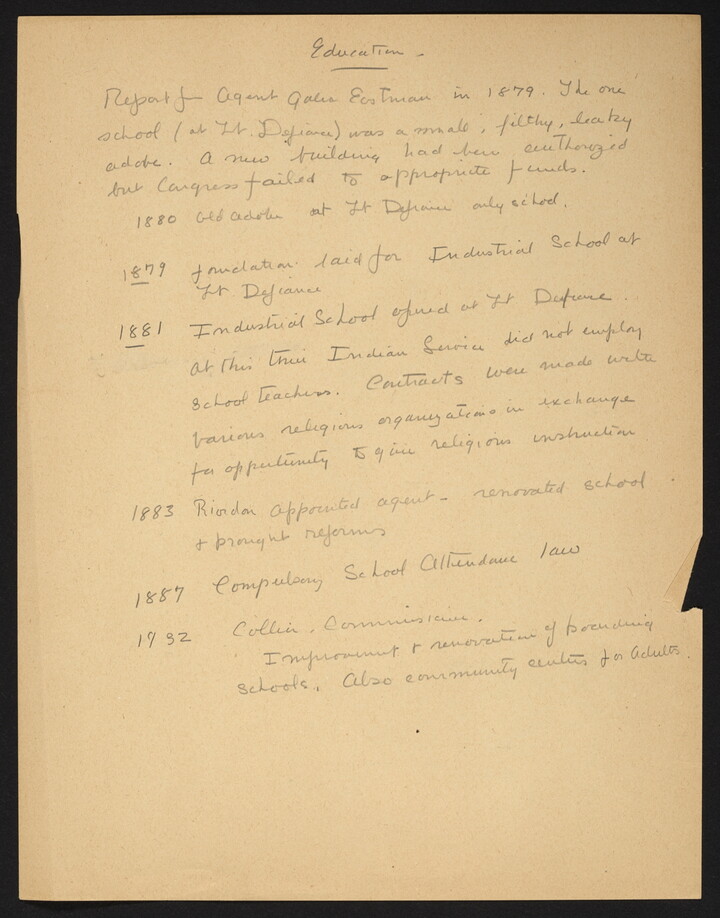 Education -
Report from Agent Galen Eastman in 1879. The one
school (at Ft. Defiance) was a small, filthy, leaky
adobe. A new building had been authorized
but Congress failed to appropriate funds.
1880 Old adobe at Ft Defiance only school.
1879 foundation laid for Industrial School at
Ft Defiance
1881 Industrial School opened at Ft Defiance.
At this time Indian Service did not employ
school teachers. Contracts were made with
various religious organizations in exchange
for opportunity to give religious instruction
1883 Riordon appointed agent - renovated school
& brought reforms
1887 Compulsory School Attendance law
1932 Collier, Commissioner.
Improvement & renovation of boarding
schools. Also community centers for adults.